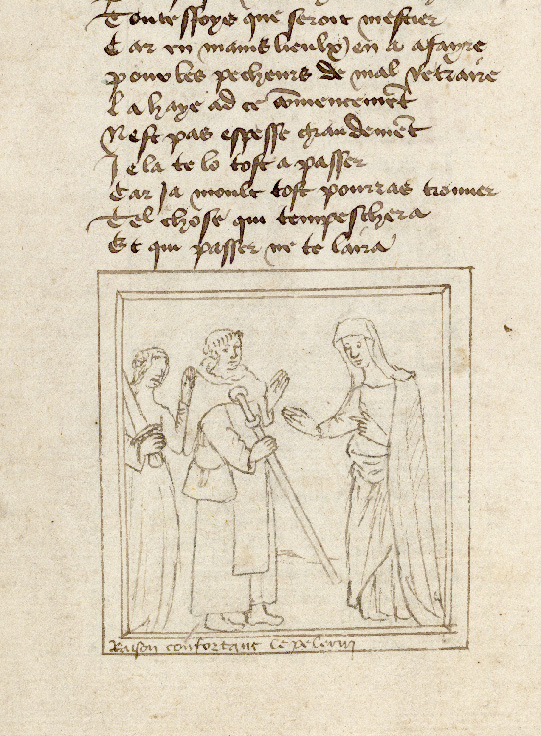 Touteffoys que seroit mestier
Car en mains lieulx en a afayre
pour les pecheurs de mal retraire
La haye ad ce cōmencemēt
Nest pas espesse grandemēt
Je la te lo tost a passer
Car Ja moult tost pourras trouuer
Tel chose qui tempeschera
Et qui passer ne te laira
Raison confortant le pelerin